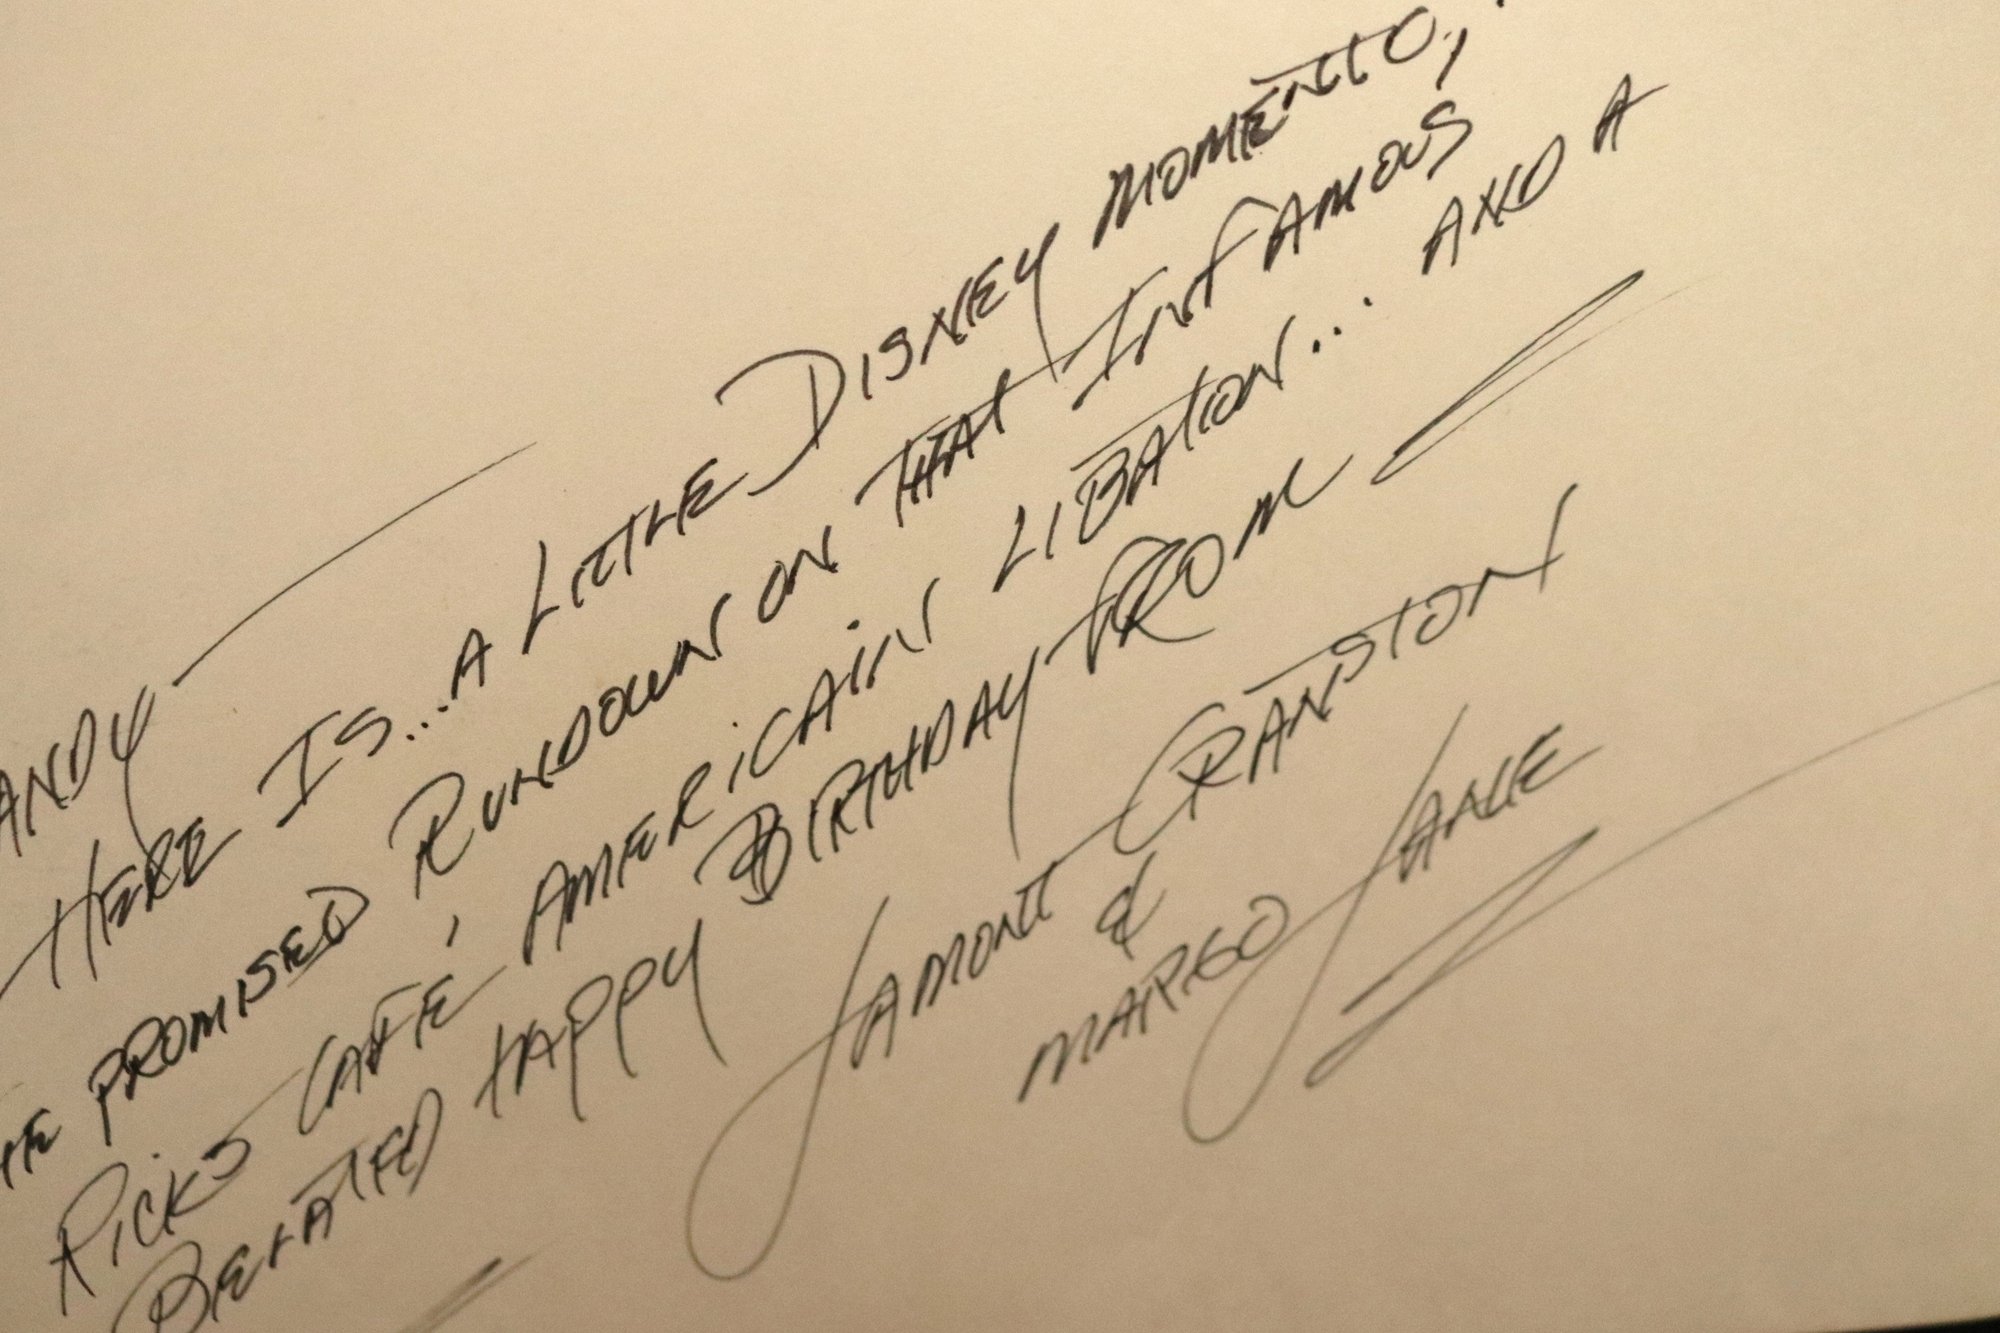 ANDY
HERE IS... A LITTLE DISNEY MOMENTO,
HE PROMISED RUNDOWN ON THAT INFAMOUS
RICK'S CAFÉ AMERICAIN LIBATION... AND A
BELATED HAPPY BIRTHDAY FROM
LAMONT CRANSTON
&
MARGO LANE